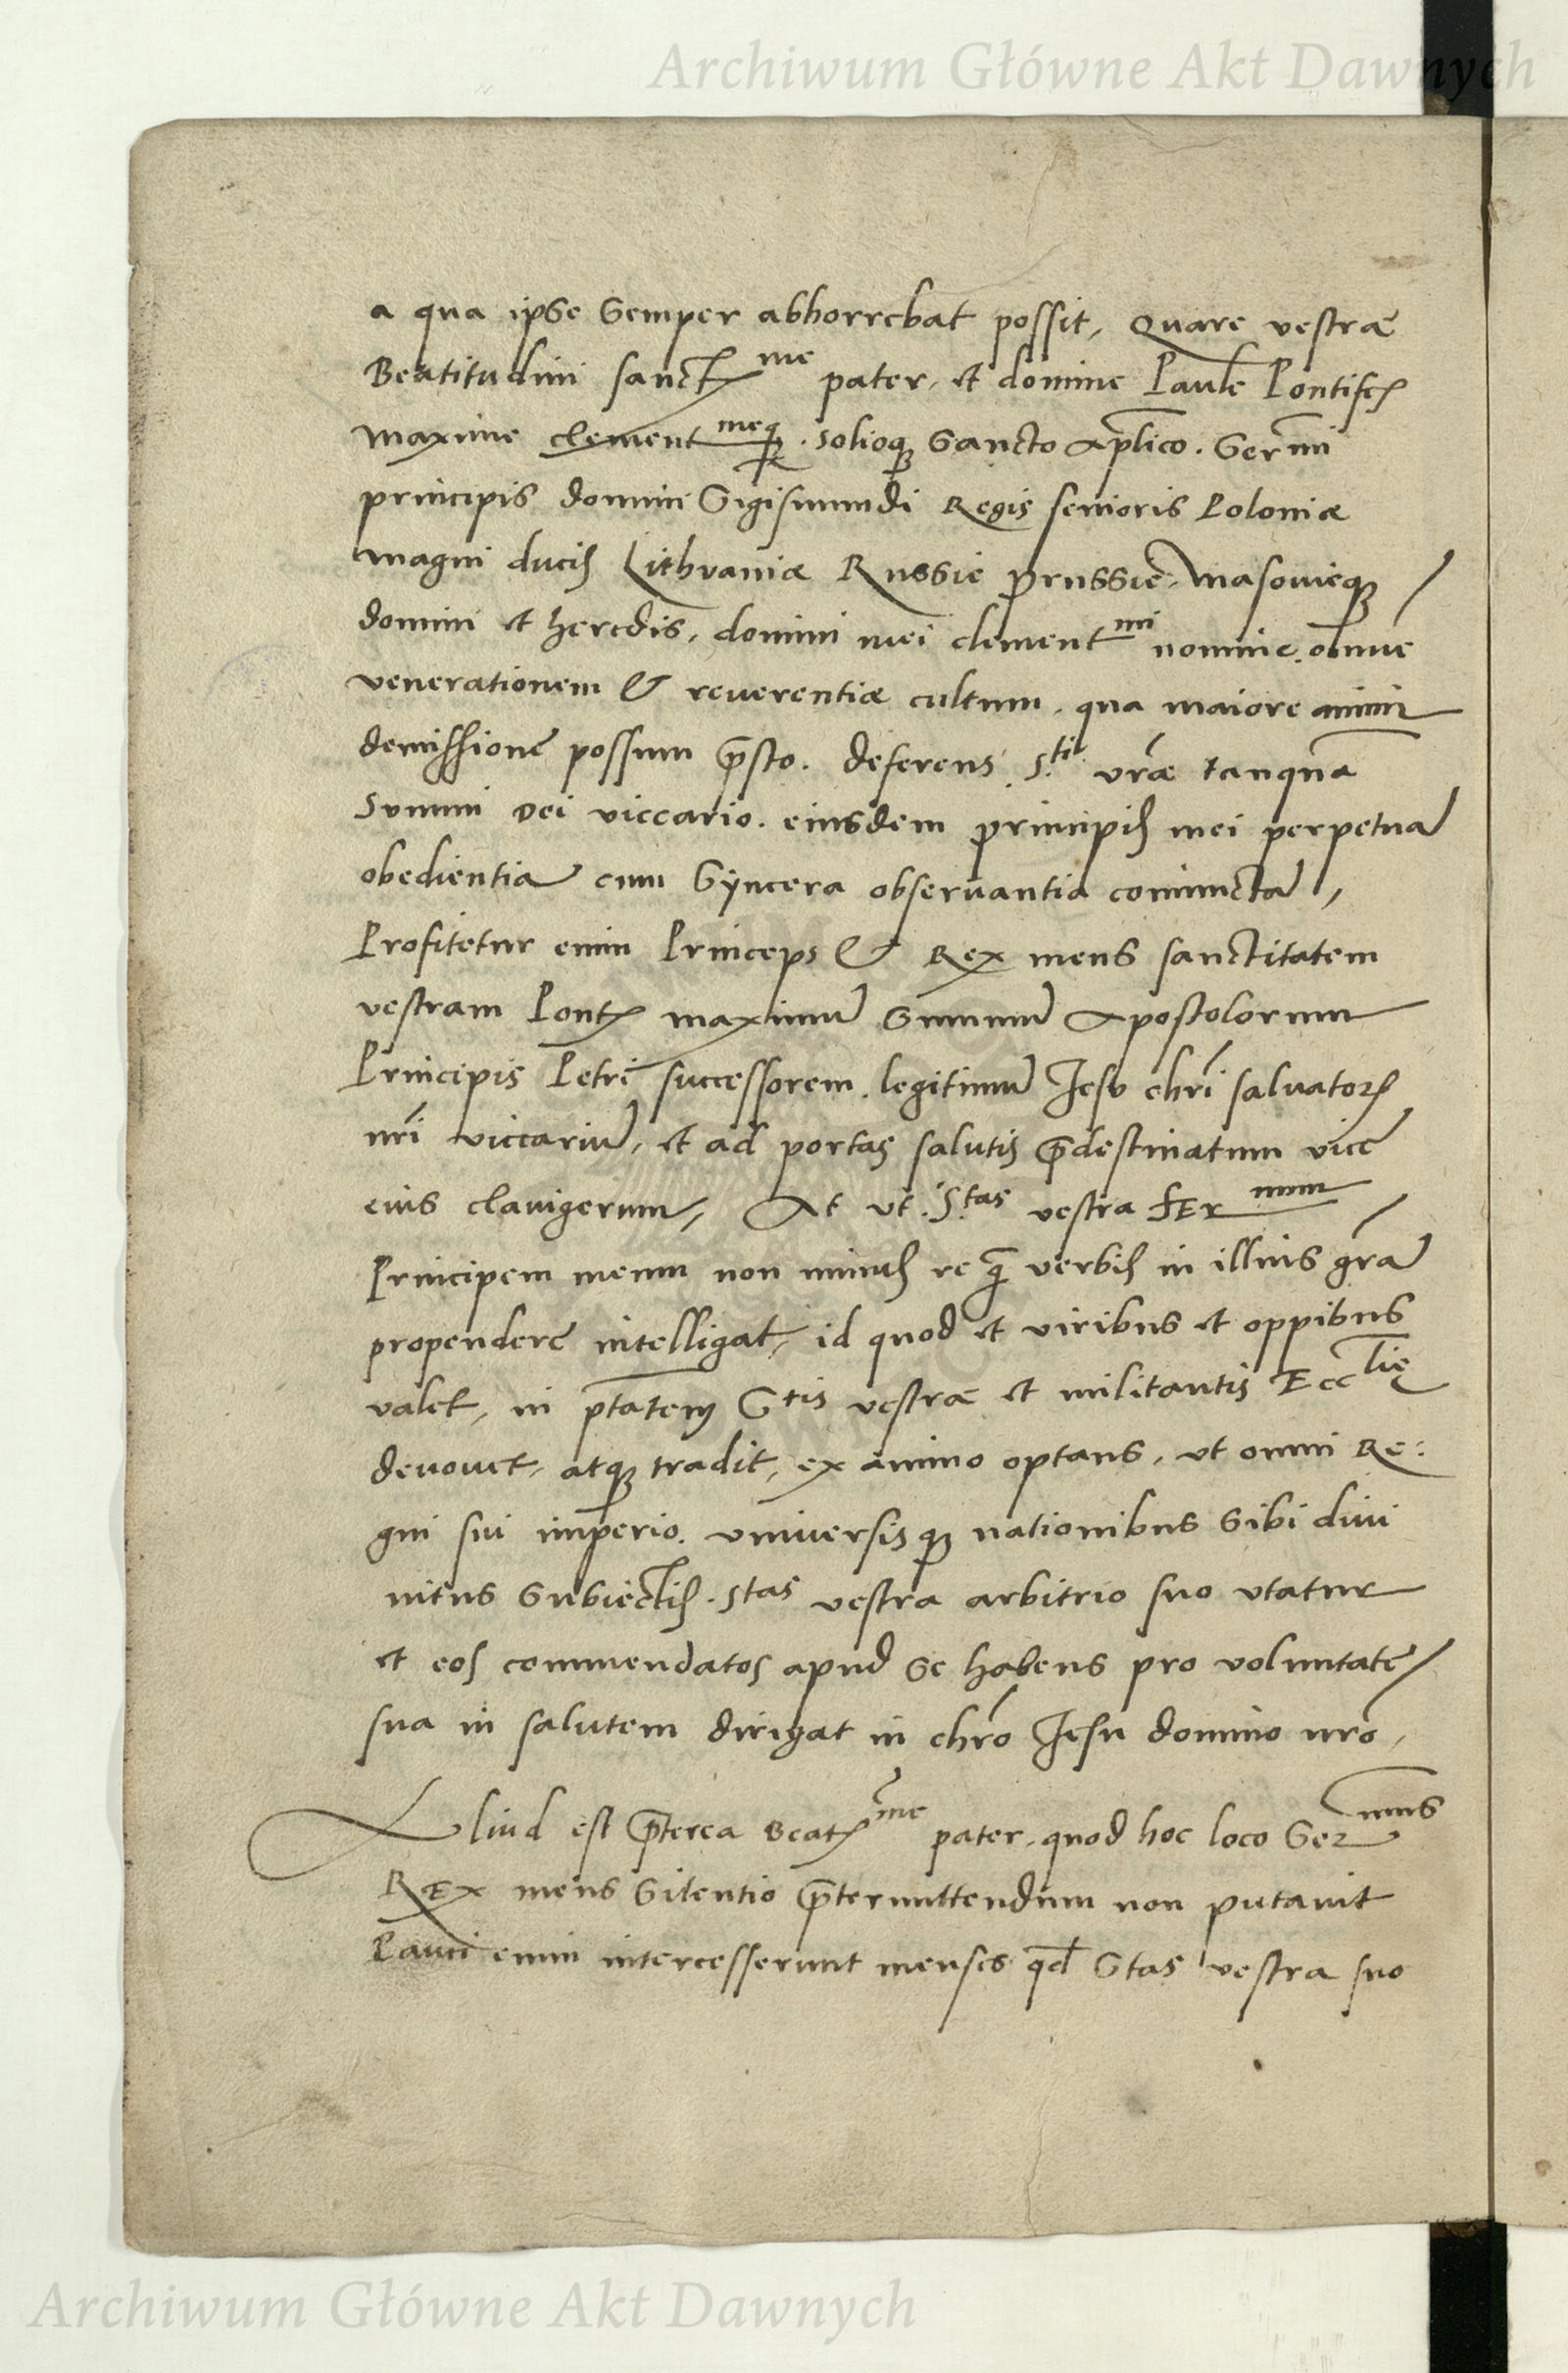 Archiwum Główne Akt Dawnych
a qua ipse semper abhorrebat possit, Quare vestræ
Beatitudini sanct^me pater, et domine Paule Pontifex
maxime clement^meq3. solioq3 sancto ap̃lico. Ser̃mi
principis domini Sigismundi Regis senioris Poloniæ
magni ducis Lithvaniæ Russie prussie, masovieq3
domini et heredis, domini mei clement^mi nomine. om̃ne
venerationem & reverentiæ cultum, qua maiore animi
demissione possum p̃sto. deferens .S.^ti vr̃æ tanquã
summi Dei viccario. eiusdem principis mei perpetuã
obedientiã cum syncera observantia coniunctã,
Profitetur enim Princeps & Rex meus sanctitatem
vestram Pont. maximũ summũ Apostolorum
Principis Petri successorem, legitimũ Jesv chr̃i salvatoris
nr̃i viccariũ, et ad portas salutis p̃destinatum vicẽ
eius clavigerum, At vt .S.^tas vestra sEr^mum
Principem meum non minus re q̃ verbis in illius gr̃ã
propendere intelligat, id quod et viribus et oppibus
valet, in pt̃atem S^tis vestræ et militantis Ecc^lię
devovet, atq3 tradit, ex animo optans, vt omni Re:
gni sui imperio. vniversisq3 nationibus sibi divi
nitus subiectis. S^tas vestra arbitrio suo vtatur
et eos commendatos apud se habens pro voluntate
sua in salutem dirigat in chr̃o Jesu domino nr̃o,
Aliud est p̃terea Beat^me pater, quod hoc loco Ser^mus
REx meus silentio p̃termittendum non putavit
Pauci enim intercesserunt menses qd̃ S^tas vestra suo
Archiwum Główne Akt Dawnych